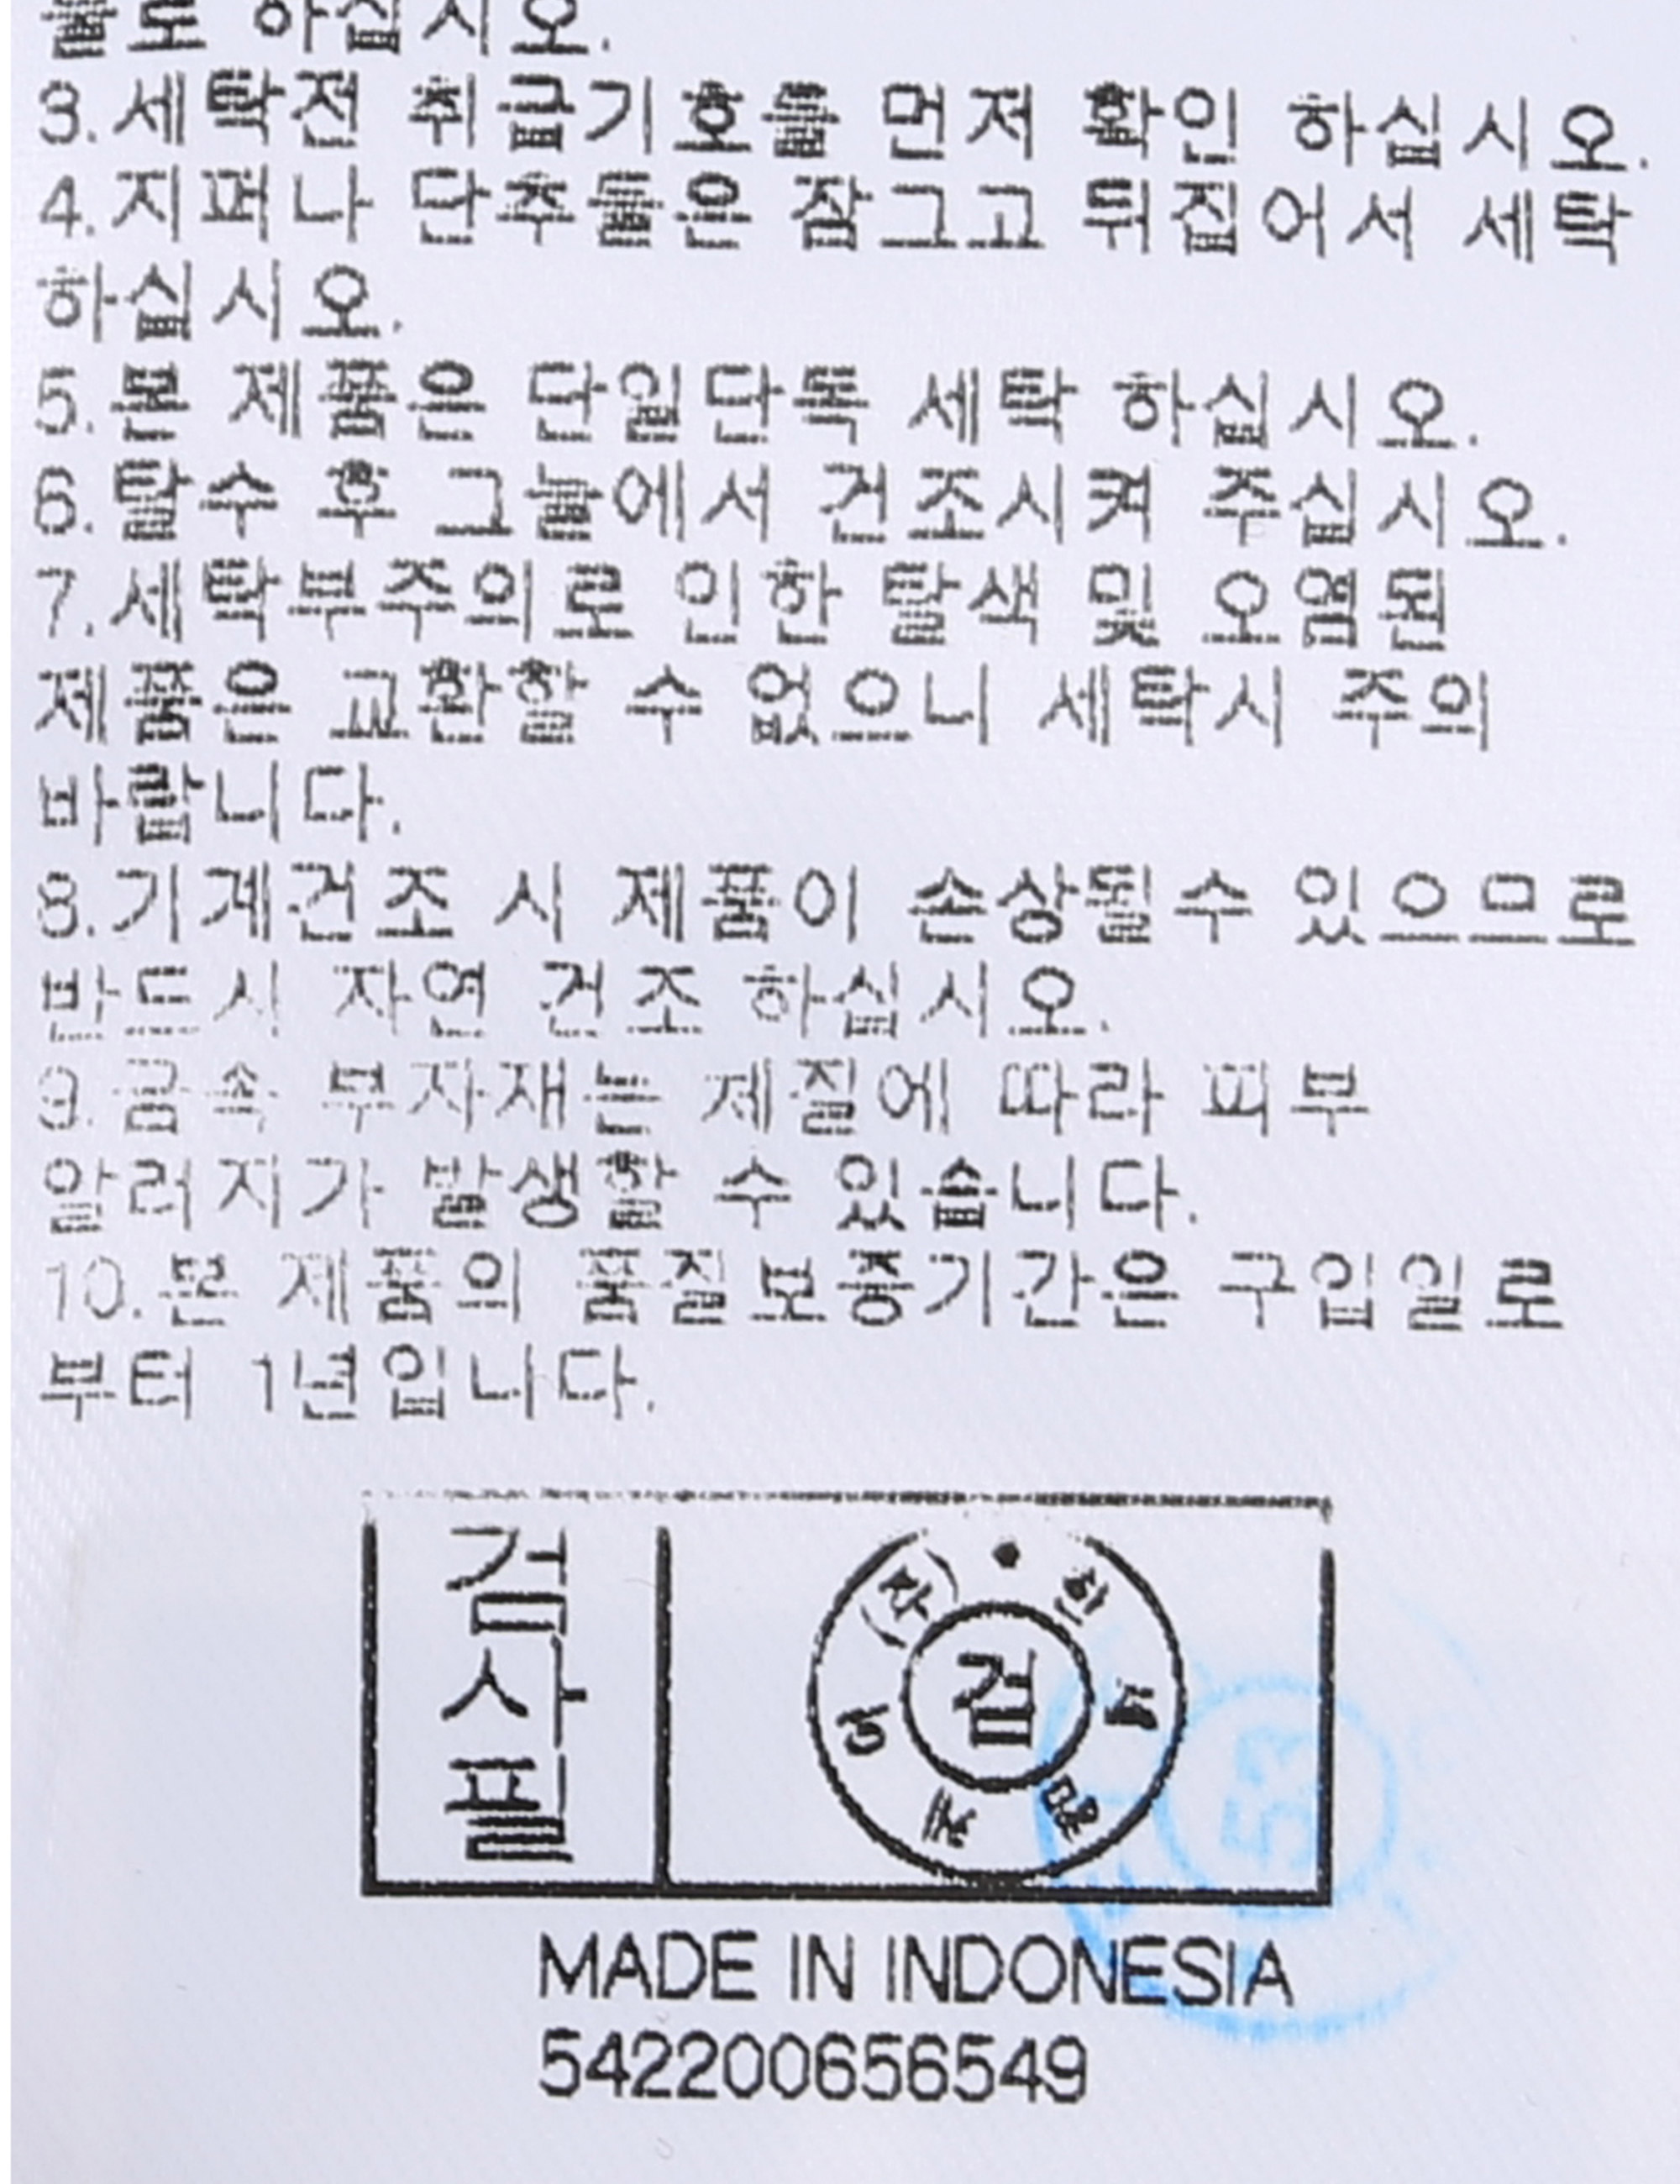 물로 하십시오.
3.세탁전 취급기호를 먼저 확인 하십시오.
4.지퍼나 단추들은 잠그고 뒤집어서 세탁
하십시오.
5.본 제품은 단일단독 세탁 하십시오.
6.탈수 후 그늘에서 건조시켜 주십시오.
7.세탁부주의로 인한 탈색 및 오염된
제품은 교환할 수 없으니 세탁시 주의
바랍니다.
8.기계건조 시 제품이 손상될수 있으므로
반드시 자연 건조 하십시오.
9.금속 부자재는 재질에 따라 피부
알러지가 발생할 수 있습니다.
10.본 제품의 품질보증기간은 구입일로
부터 1년입니다.
검사필
검
53
MADE IN INDONESIA
542200656549